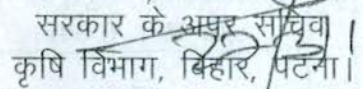 सरकार के अपर सचिव।
कृषि विभाग, बिहार, पटना।